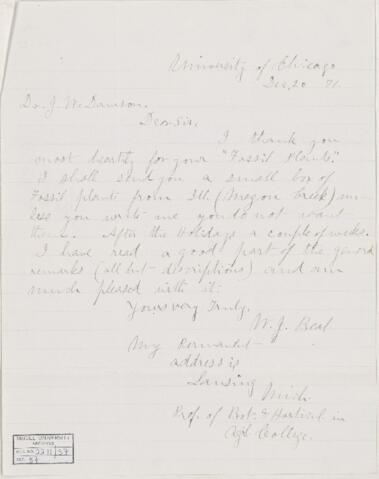 University of Chicago
Dec. 20 71.
Dr. J. W. Dawson.
Dear Sir,
I thank you
most heartily for your "Fossil Plants".
I shall send you a small box of
Fossil plants from Ill. (Mazon Creek) un-
less you write me you do not want
them. After the Holidays a couple of weeks.
I have read a good part of the general
remarks (all but descriptions) and am
much pleased with it.
Yours very Truly,
W. J. Beal
My Permanent
address is
Lansing Mich
Prof of Bot. & Horticul in
Agl College.
McGILL UNIVERSITY
ARCHIVES